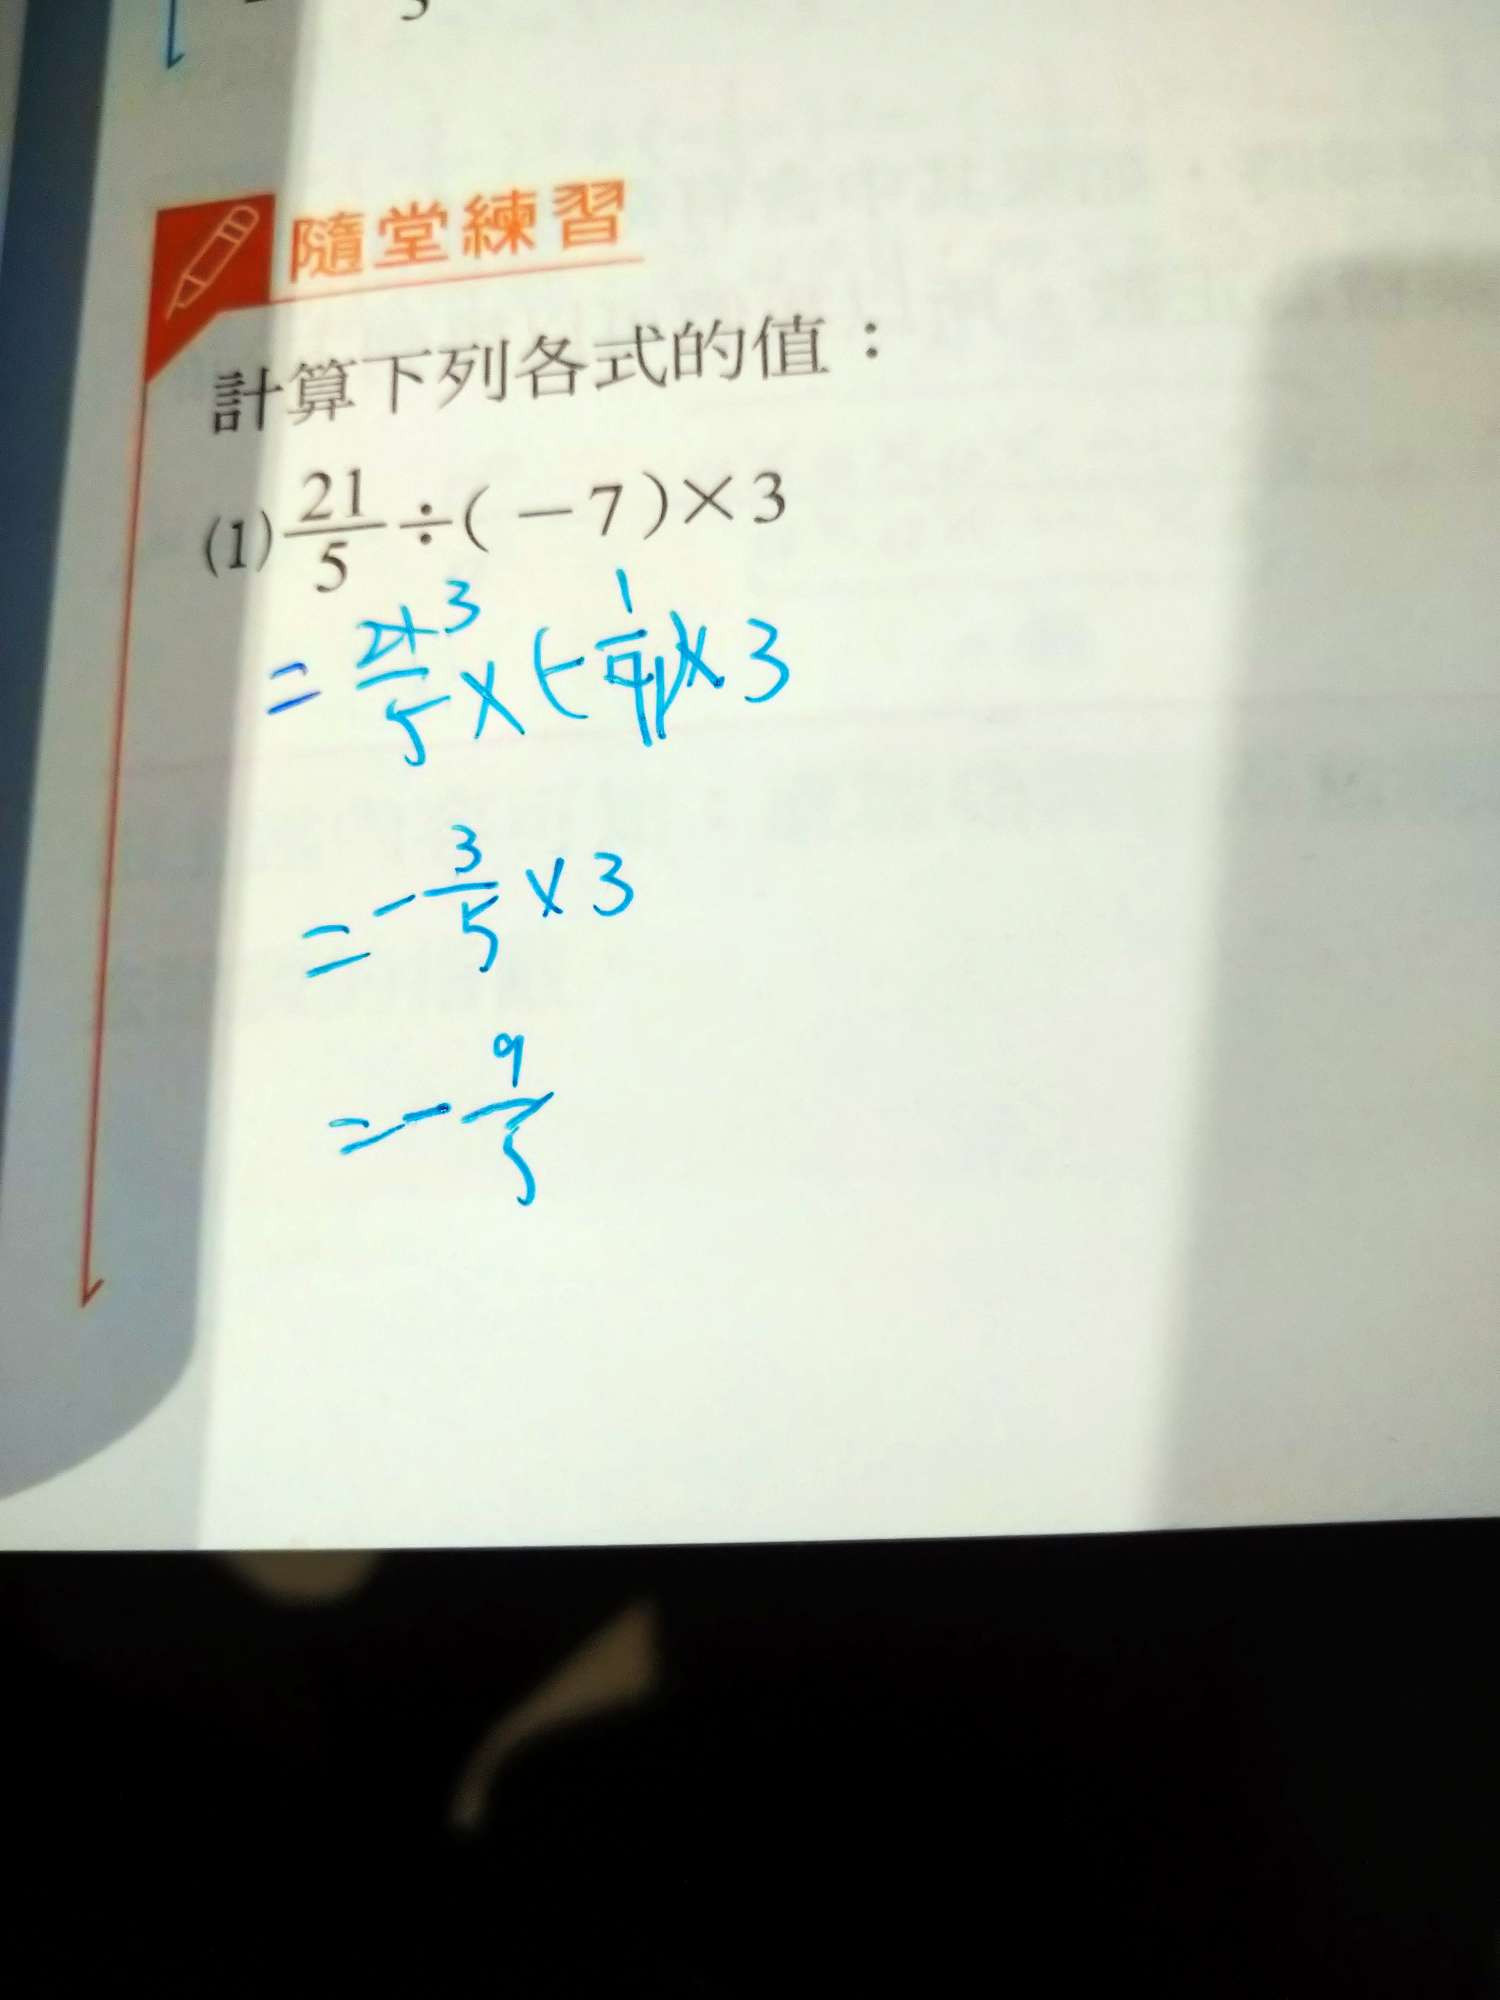 隨堂練習
計算下列各式的值：
(1) 21/5 ÷ ( − 7 ) × 3
= 21/5 3 × (- 1/7 1) × 3
= - 3/5 × 3
= - 9/5